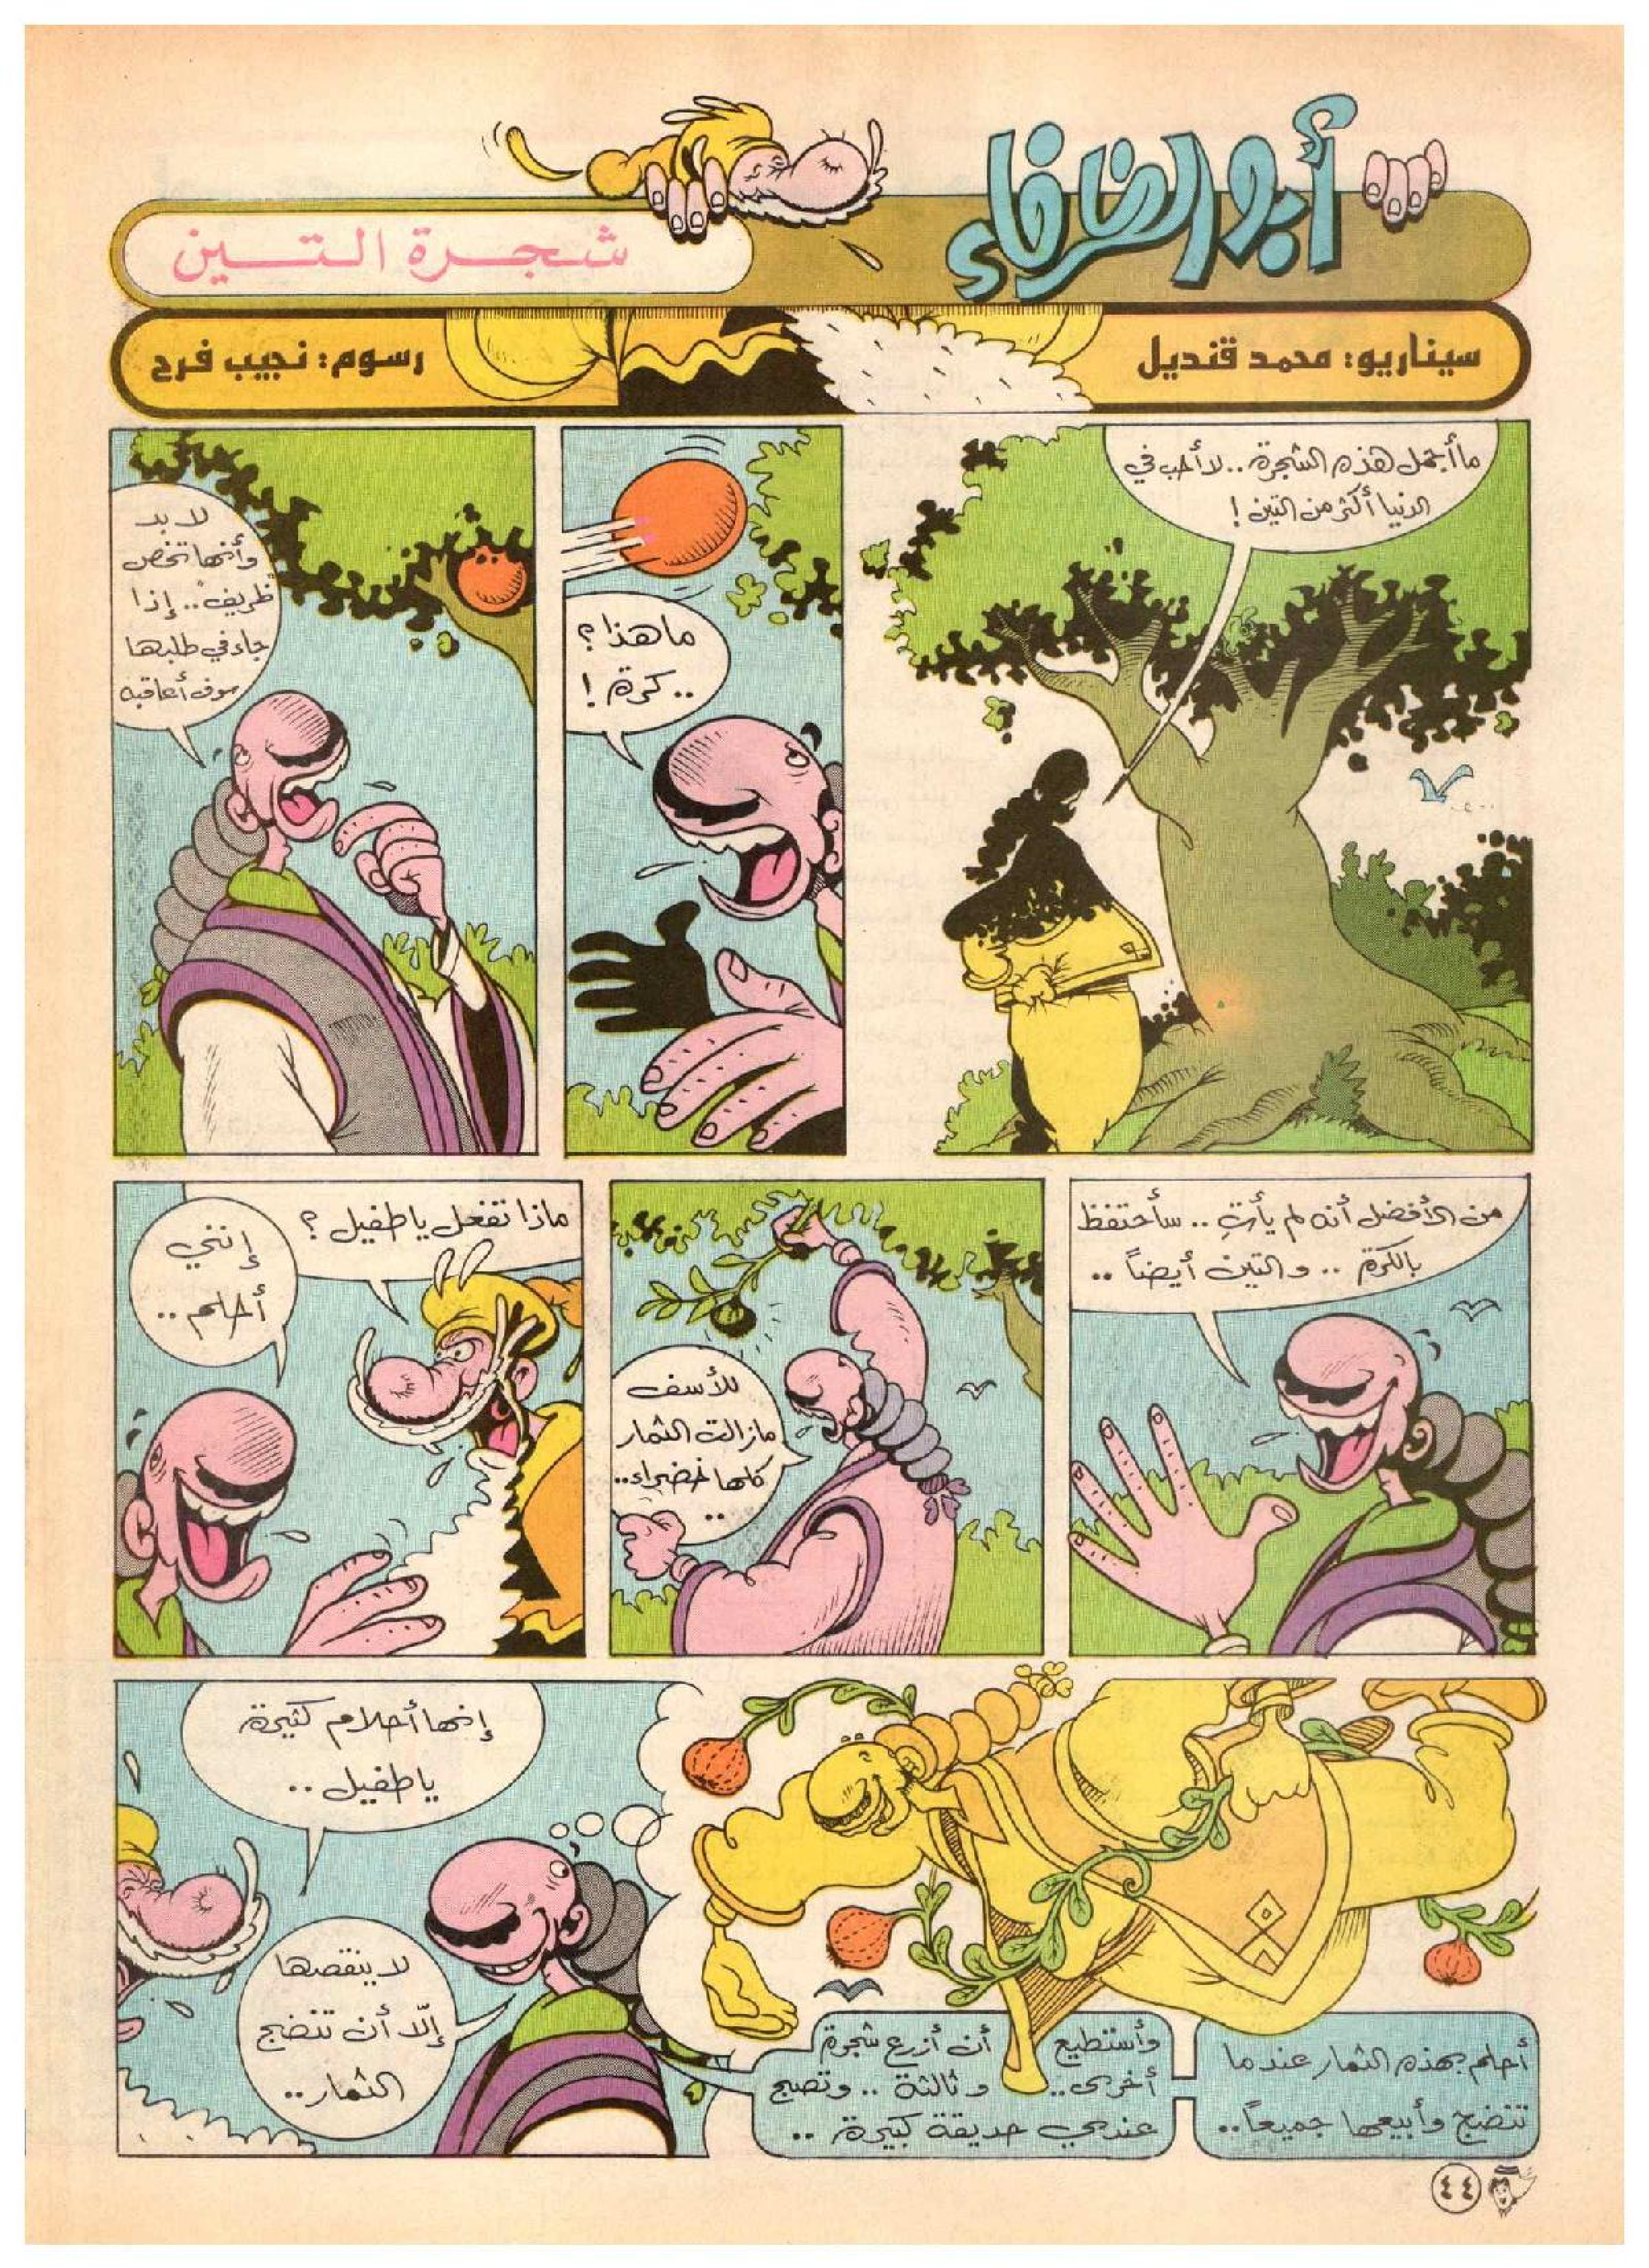 أبو الظرفاء
شجرة التين
سيناريو: محمد قنديل
رسوم: نجيب فرح
ما أجمل هذه الشجرة.. لا أحب في
الدنيا أكثر من التين!
ما هذا؟
.. كرة!
لا بد
وأنها تخص
ظريف.. إذا
جاء في طلبها
سوف أعاقبه
من الأفضل أنه لم يأتِ .. سأحتفظ
بالكرة .. والتين أيضاً ..
للأسف
مازالت الثمار
كلها خضراء..
..
ماذا تفعل يا طفيل؟
إنني
أحلم ..
أحلم بهذه الثمار عندما
تنضج وأبيعها جميعاً..
وأستطيع أن أزرع شجرة
أخرى.. وثالثة .. وتصبح
عندي حديقة كبيرة ..
إنها أحلام كثيرة
يا طفيل ..
لا ينقصها
إلّا أن تنضج
الثمار..
٤٤